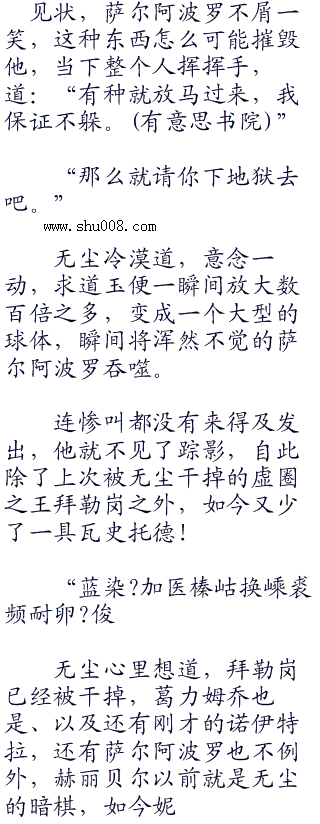 见状，萨尔阿波罗不屑一
笑，这种东西怎么可能摧毁
他，当下整个人挥挥手，
道：“有种就放马过来，我
保证不躲。(有意思书院)”
“那么就请你下地狱去
吧。”
www.shu008.com
无尘冷漠道，意念一
动，求道玉便一瞬间放大数
百倍之多，变成一个大型的
球体，瞬间将浑然不觉的萨
尔阿波罗吞噬。
连惨叫都没有来得及发
出，他就不见了踪影，自此
除了上次被无尘干掉的虚圈
之王拜勒岗之外，如今又少
了一具瓦史托德！
“蓝染?加医榛岵换嵊裘
频耐卯?俊
无尘心里想道，拜勒岗
已经被干掉，葛力姆乔也
是、以及还有刚才的诺伊特
拉，还有萨尔阿波罗也不例
外，赫丽贝尔以前就是无尘
的暗棋，如今妮